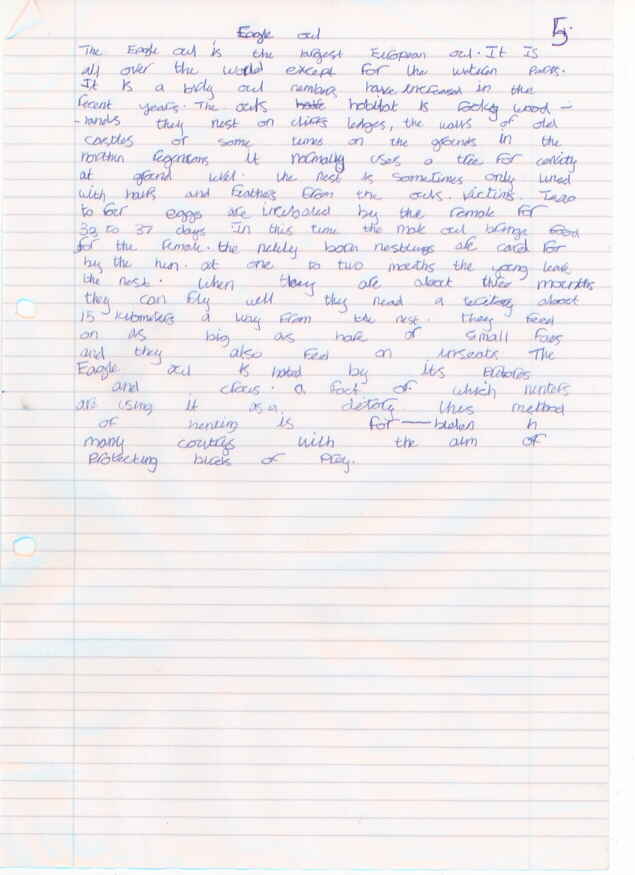 Eagle owl
5.
The Eagle owl is the largest European owl. It is
all over the world except for the western parts.
It is a owl numbers have increased in the
recent years. The owls habitat is rocky wood -
- lands they nest on cliffs ledges, the walls of old
castles or some times on the grounds in the
northin regenions it normally uses a tree for cavity
at ground level. the nest is sometimes only lined
with hairs and feathes from the owls. victims.
to for eggs are incubated by the female for
32 to 37 days In this time the male owl brings food
for the female. the newly born nestlings are card for
by the hen. at one to two months the young leave
the nest. when they are about three mounths
they can fly well they need a about
15 kilometers a way from the nest. they feed
on as big as hare or small foxs
and they also feed on insects The
Eagle owl is hated by its
and crows. a fact of which hunters
are using it as a this method
of hunting is for — biden in
many countrys with the aim of
protecting birds of prey.